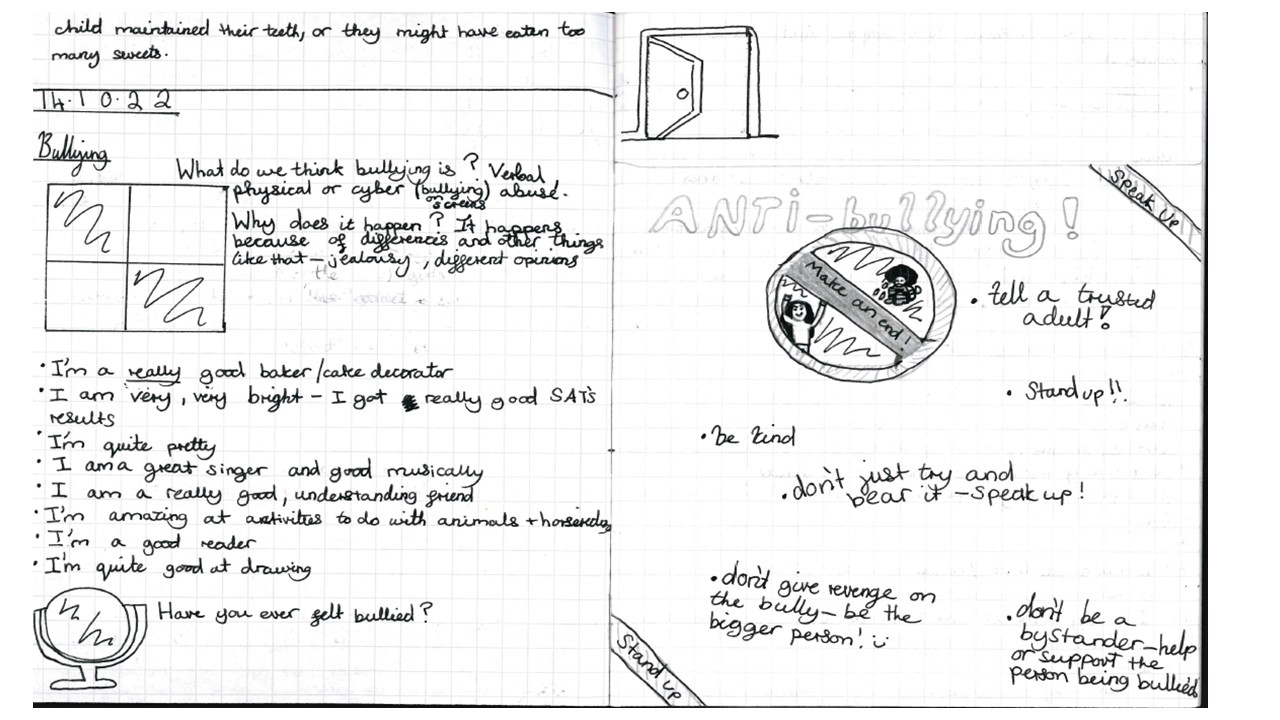 child maintained their teeth, or they might have eaten too
many sweets.
14.10.22
Bullying
What do we think bullying is? Verbal
physical or cyber (bullying) abuse.
screens
Why does it happen? It happens
because of differences and other things
like that – jealousy, different opinions
• I'm a really good baker/cake decorator
• I am very, very bright – I got really good SATs
results
• I'm quite pretty
• I am a great singer and good musically
• I am a really good, understanding friend
• I'm amazing at activities to do with animals +
• I'm a good reader
• I'm quite good at drawing
Have you ever felt bullied?
Speak Up
ANTi-bullying!
Make an end!
• tell a trusted
adult!
• Stand up!!
• be kind
• don't just try and
bear it – speak up!
• don't give revenge on
the bully – be the
bigger person! :)
• don't be a
bystander – help
or support the
person being bullied
Stand up